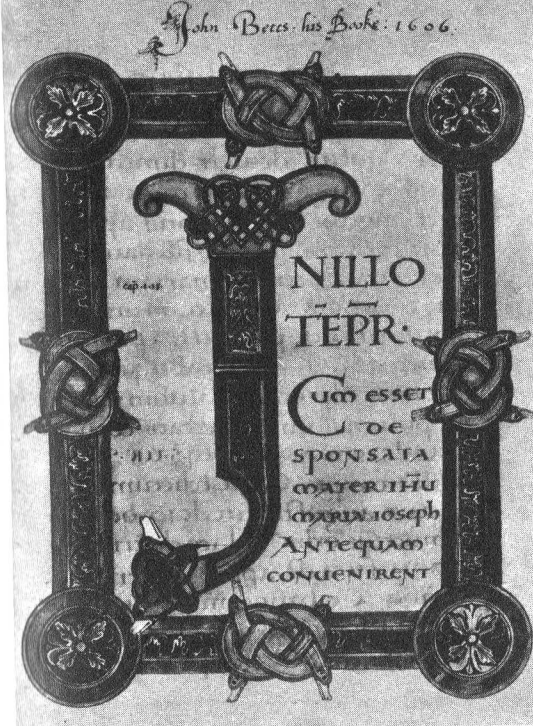 John Betts his Booke: 1606.
cap. 108.
INILLO
TĒPR·
CUM ESSET
DE
SPONSATA
MATER IHU
MARIA IOSEPH
ANTEQUAM
CONUENIRENT